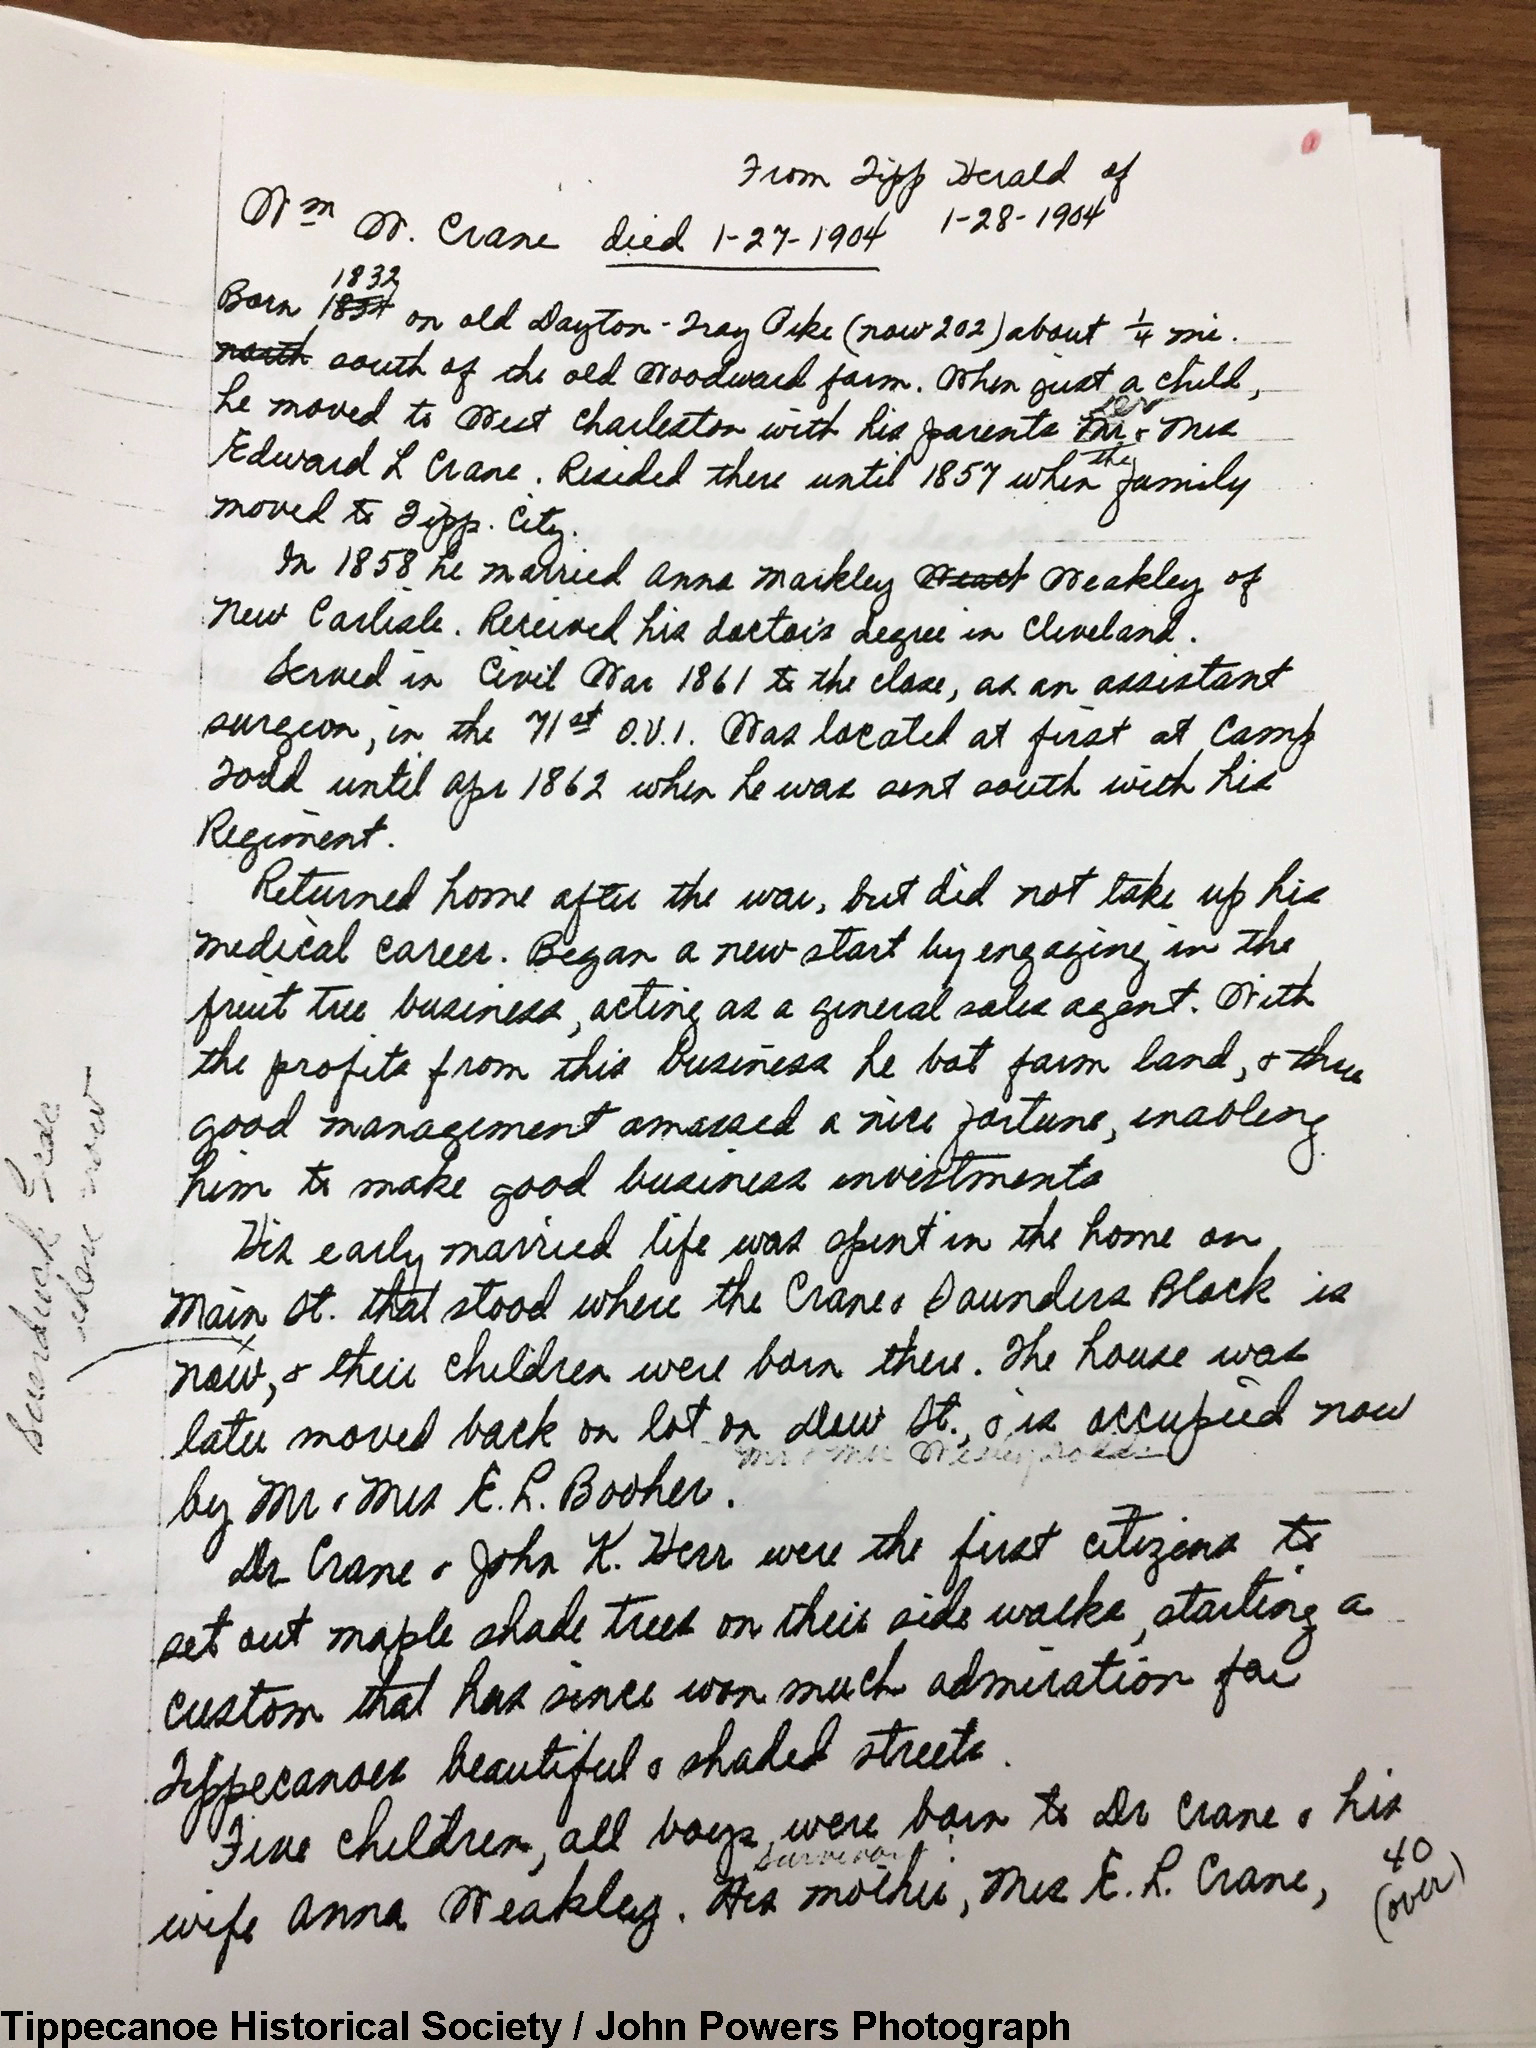 From Tipp Herald of
1-28-1904
Wm W. Crane died 1-27-1904
1832
Born 1834 on old Dayton-Troy Pike (now 202) about 1/4 mi.
north south of the old Woodward farm. When just a child,
he moved to West Charleston with his parents Mr & Mrs
Edward L Crane. Resided there until 1857 when the family
moved to Tipp. City.
In 1858 he married Anna Markley Weast Weakley of
New Carlisle. Received his doctor's degree in Cleveland.
Served in Civil War 1861 to the close, as an assistant
surgeon, in the 71st O.V.I. Was located at first at Camp
Todd until Apr 1862 when he was sent south with his
Regiment.
Returned home after the war, but did not take up his
medical career. Began a new start by engaging in the
fruit tree business, acting as a general sales agent. With
the profits from this business he bot farm land, & thru
good management amassed a nice fortune, enabling
him to make good business investments
His early married life was spent in the home on
Main St. that stood where the Crane & Saunders Block is
now, & their children were born there. The house was
later moved back on lot on Dow St., & is occupied now
Mr & Mrs Wesley
by Mr & Mrs E. L. Booher.
Dr Crane & John K. Herr were the first citizens to
set out maple shade trees on their side walks, starting a
custom that has since won much admiration for
Tippecanoes beautiful & shaded streets.
Five children, all boys, were born to Dr Crane & his
survivors:
wife Anna Weakley. His mother, Mrs E. L. Crane,
40
(over)
where now
Tippecanoe Historical Society / John Powers Photograph